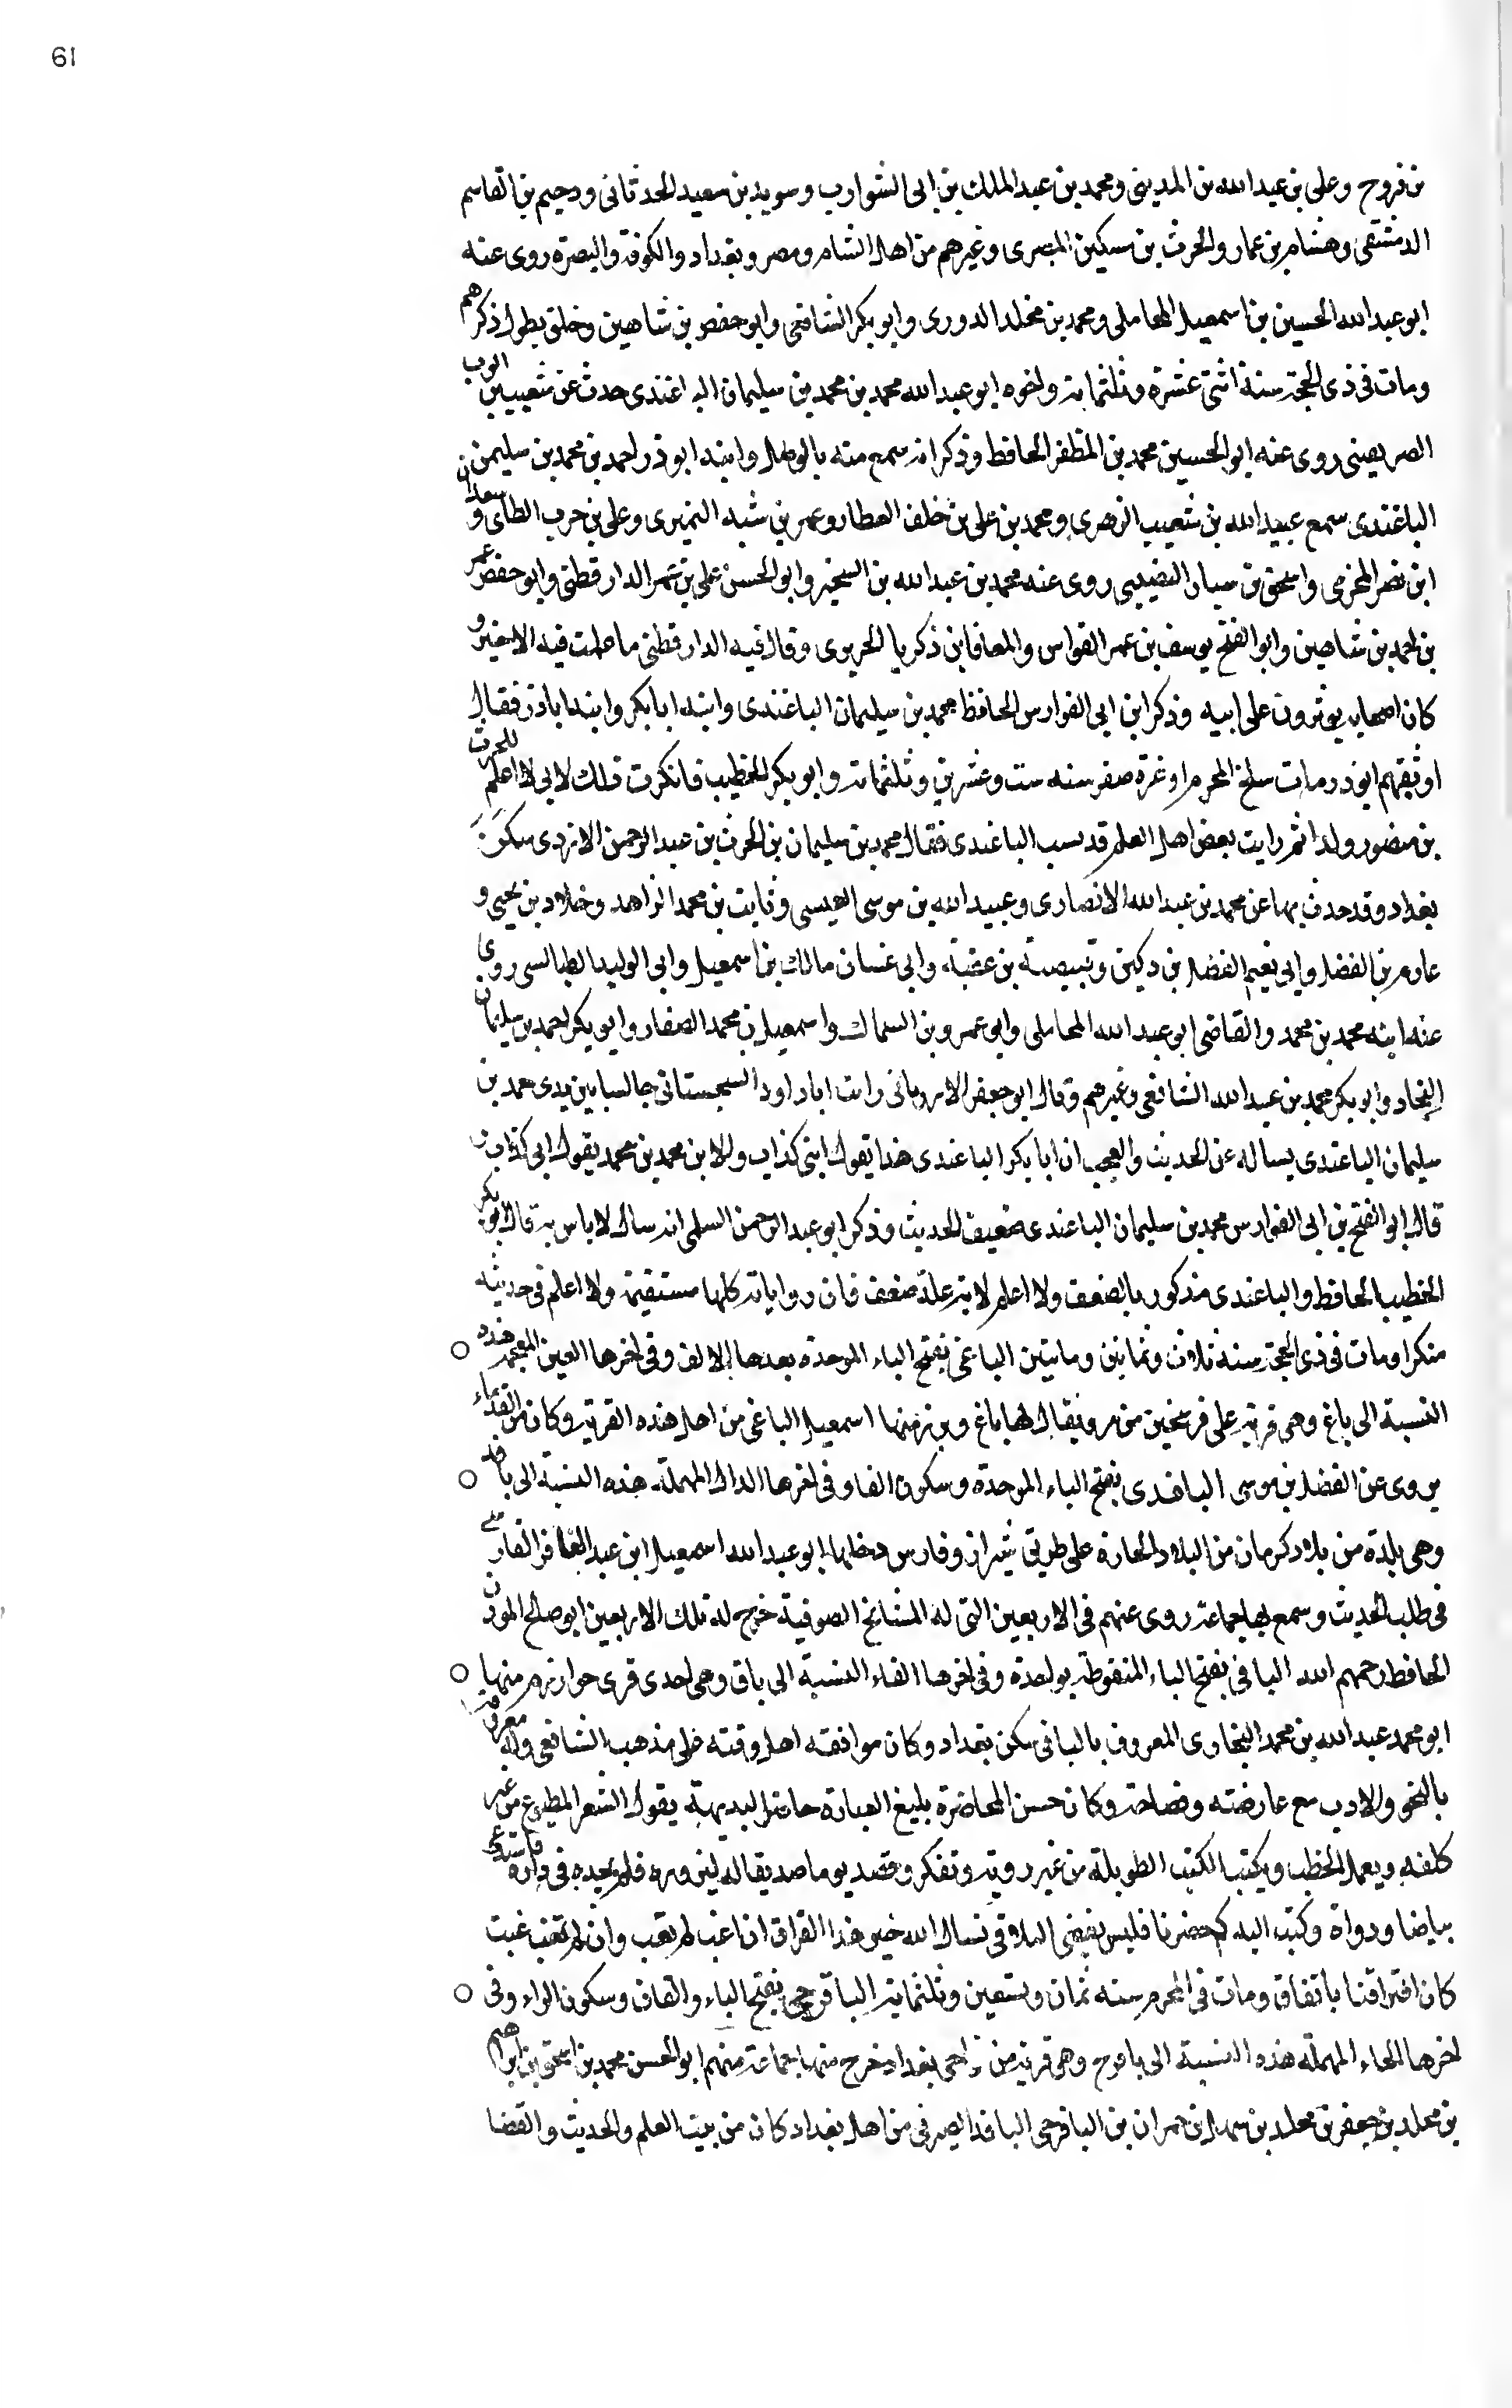 61
بن فروخ وعلى بن عبد الله بن المديني ومحمد بن عبد الملك بن ابى الشوارب وسويد بن سعيد الحدثانى ودحيم بن القاسم
الدمشقى وهشام بن عمار والحرث بن مسكين المصرى وغيرهم من اهل الشام ومصر وبغداد والكوفة والبصرة روى عنه
ابو عبد الله الحسين بن اسمعيل المحاملى ومحمد بن مخلد الدورى وابو بكر الشافعى وابو حفص بن شاهين وخلق يطول ذكرهم
ومات فى ذى الحجة سنة اثنتى عشرة وثلثماية واخوه ابو عبد الله محمد بن محمد بن سليمان الباغندى حدث عن شعيب بن ايوب
الصريفينى روى عنه ابو الحسين محمد بن المظفر الحافظ وذكر انه سمع منه بالموصل وابنه ابو ذر احمد بن محمد بن سليمن
الباغندى سمع عبيد الله بن شعيب الزهرى ومحمد بن على بن خلف العطار وعمر بن شبه النميرى وعلى بن حرب الطاى وسعدان
ابن نصر المخرمى واسحق بن سيار النصيبى روى عنه محمد بن عبد الله بن الشخير وابو الحسن على بن عمر الدارقطنى وابو حفص عمر
بن احمد بن شاهين وابو الفتح يوسف بن عمر القواس والمعافا بن زكريا الحريرى وقال فيه الدارقطنى ما علمت فيه الا خير و
كان اصحابه يوثرون على ابيه وذكر ابن ابى الفوارس الحافظ محمد بن سليمان الباغندى وابنه ابا بكر وابنه ابا ذر فقال
اوثقهم ابو ذر ومات سلخ المحرم او غرة صفر سنه ست وعشرين وثلثماية وابو بكر الخطيب فانكرت ذلك لانى لا اعلم للحرث
بن منصور ولدا ثم رايت بعض اهل العلم قد نسب الباغندى فقال محمد بن سليمان بن الحرث بن عبد الرحمن الازدى سكن
بغداد وقد حدث بها عن محمد بن عبد الله الانصارى وعبيد الله بن موسى العبسى وثابت بن محمد الزاهد وخلاد بن يحيى و
عارم بن الفضل وابى نعيم الفضل بن دكين وقبيصة بن عقبة وابى غسان مالك بن اسمعيل وابى الوليد الطيالسى روى
عنه ابنه محمد بن محمد والقاضى ابو عبد الله المحاملى وابو عمرو بن السماك واسمعيل بن محمد الصفار وابو بكر احمد بن سليمان
النجاد وابو بكر محمد بن عبد الله الشافعى وغيرهم وقال ابو جعفر الارزنانى رايت ابا داود السجستانى جالسا بين يدى محمد بن
سليمان الباغندى يساله عن الحديث والعجب ان ابا بكر الباغندى هذا يقول ابنى كذاب والابن محمد بن محمد يقول ابى كذاب
قال ابو الفتح بن ابى الفوارس محمد بن سليمان الباغندى ضعيف الحديث وذكر ابو عبد الرحمن السلمى انه سال لا باس به قال ابو بكر
الخطيب الحافظ والباغندى مذكور بالضعف ولا اعلم لاية علة ضعف فان رواياته كلها مستقيمة ولا اعلم فى حديثه
منكرا ومات فى ذى الحجة سنه ثلاث وثمانين ومايتين الباغى بفتح الباء الموحدة بعدها الالف وفى اخرها الغين المعجمة هذه
النسبة الى باغ وهى قرية على فرسخين من مرو يقال لها باغ وبرزن منها اسمعيل الباغى من اهل هذه القرية وكان من القدماء
يروى عن الفضل بن موسى البافدى بفتح الباء الموحدة وسكون الفا وفى اخرها الدال المهملة هذه النسبة الى بافد
وهى بلدة من بلاد كرمان من البلاد الحارة على طريق شيراز وفارس دخلها ابو عبد الله اسمعيل ابن عبد الغافر الفارسى
فى طلب الحديث وسمع بها جماعة روى عنهم فى الاربعين التى له المشايخ الصوفية خرج له تلك الاربعين ابو صالح الموذن
الحافظ رحمهم الله البافى بفتح الباء المنقوطة بواحدة وفى اخرها الفاء النسبة الى باف وهى احدى قرى خوارزم منها
ابو محمد عبد الله بن محمد البخارى المعروف بالبافى سكن بغداد وكان موافقته اهل وقته على مذهب الشافعى وله معرفة
بالنحو والادب مع عارضته وفصاحته وكان حسن المحاضرة بليغ العبارة حاضر البديهة يقول الشعر المطبوع من غير
كلفه ويعمل الخطب ويكتب الكتب الطويلة من غير روية وتفكر وقصد يوما صديقا له ليزوره فلم يجده فى داره فاستدعى
بياضا ودواة وكتب اليه كم حضرنا فليس يقضى التلاقى نسال الله خير هذا الفراق ان اغب لم تغب وان لم تغب غبت
كان افتراقنا باتفاق ومات فى المحرم سنه ثمان وتسعين وثلثماية الباقرحى بفتح الباء والقاف وسكون الراء وفى
اخرها الحاء المهملة هذه النسبة الى باقرح وهى قرية من نواحى بغداد خرج منها جماعة منهم ابو الحسن محمد بن اسحق بن ابراهيم
بن مخلد بن جعفر بن مخلد بن سهل بن حمران بن الباقرحى الباقد الصيرفى من اهل بغداد كان من بيت العلم والحديث والقضا